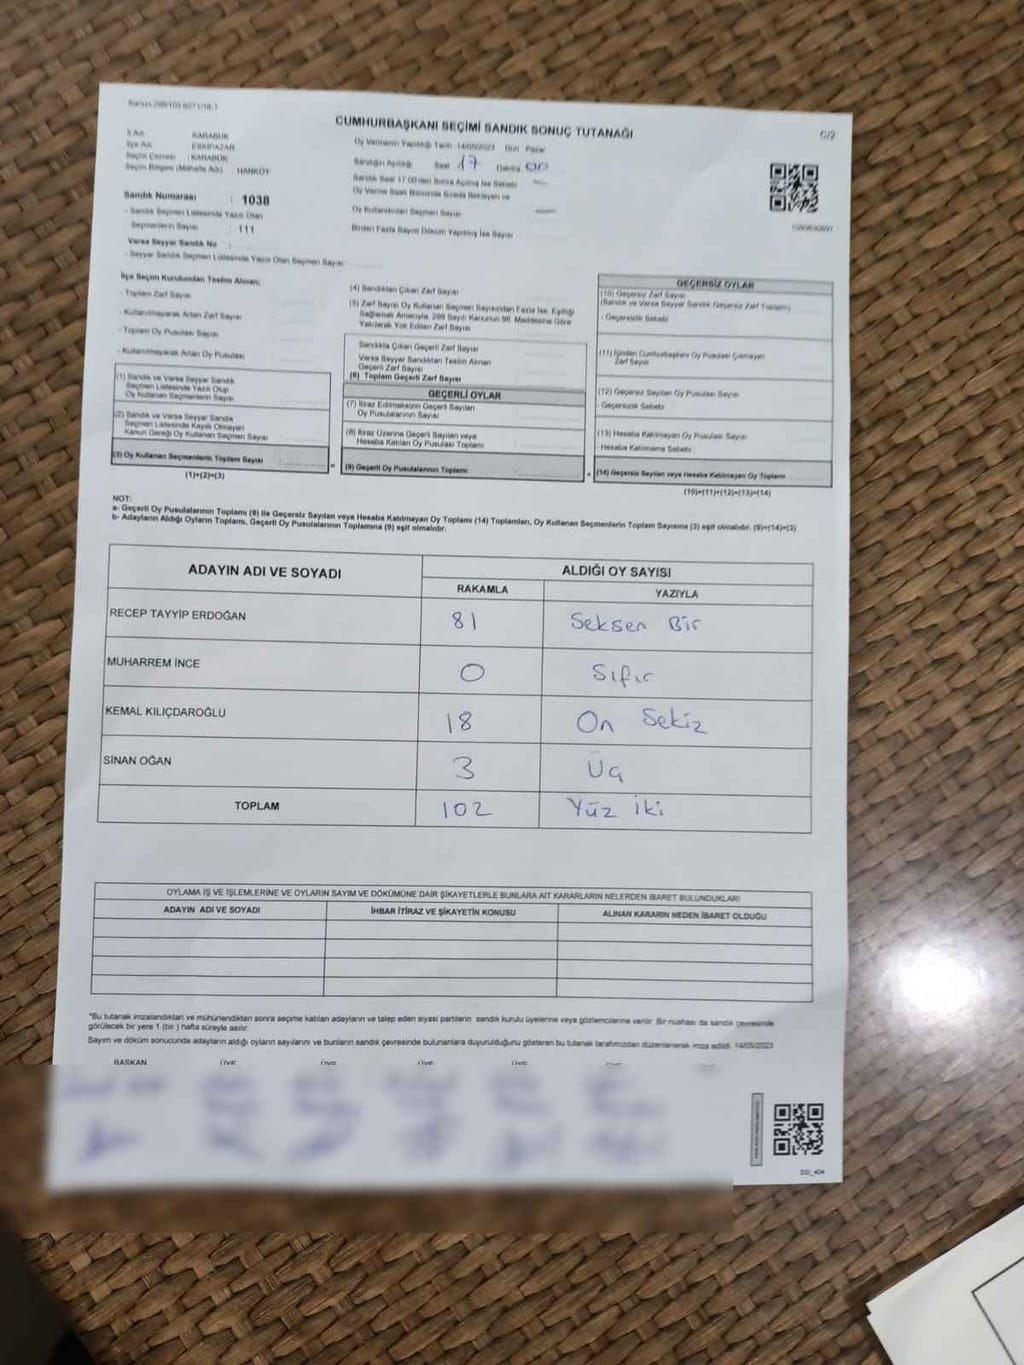 Kanun 298/105 6271/18-1
CUMHURBAŞKANI SEÇİMİ SANDIK SONUÇ TUTANAĞI
C/2
İl Adı : KARABÜK
İlçe Adı : ESKİPAZAR
Seçim Çevresi : KARABÜK
Seçim Bölgesi (Mahalle Adı) HANKÖY
Sandık Numarası : 1038
- Sandık Seçmen Listesinde Yazılı Olan
Seçmenlerin Sayısı : 111
Varsa Seyyar Sandık No
- Seyyar Sandık Seçmen Listesinde Yazılı Olan Seçmen Sayısı
Oy Vermenin Yapıldığı Tarih :14/05/2023 Gün : Pazar
Sandığın Açıldığı Saat 17 Dakika 00
Sandık Saat 17.00'den Sonra Açılmış İse Sebebi —
Oy Verme Saati Bitiminde Sırada Bekleyen ve
Oy Kullandırılan Seçmen Sayısı —
Birden Fazla Sayım Döküm Yapılmış İse Sayısı
İlçe Seçim Kurulundan Teslim Alınan;
- Toplam Zarf Sayısı
- Kullanılmayarak Artan Zarf Sayısı
- Toplam Oy Pusulası Sayısı
- Kullanılmayarak Artan Oy Pusulası
(1) Sandık ve Varsa Seyyar Sandık
Seçmen Listesinde Yazılı Olup
Oy Kullanan Seçmenlerin Sayısı
(2) Sandık ve Varsa Seyyar Sandık
Seçmen Listesinde Kayıtlı Olmayan
Kanun Gereği Oy Kullanan Seçmen Sayısı
(3) Oy Kullanan Seçmenlerin Toplam Sayısı
(1)+(2)=(3)
(4) Sandıktan Çıkan Zarf Sayısı
(5) Zarf Sayısı Oy Kullanan Seçmen Sayısından Fazla İse, Eşitliği
Sağlamak Amacıyla, 298 Sayılı Kanunun 98. Maddesine Göre
Yakılarak Yok Edilen Zarf Sayısı
Sandıkta Çıkan Geçerli Zarf Sayısı
Varsa Seyyar Sandıktan Teslim Alınan
Geçerli Zarf Sayısı
(6) Toplam Geçerli Zarf Sayısı
GEÇERLİ OYLAR
(7) İtiraz Edilmeksizin Geçerli Sayılan
Oy Pusulalarının Sayısı
(8) İtiraz Üzerine Geçerli Sayılan veya
Hesaba Katılan Oy Pusulası Toplamı
=
(9) Geçerli Oy Pusulalarının Toplamı
+
GEÇERSİZ OYLAR
(10) Geçersiz Zarf Sayısı
(Sandık ve Varsa Seyyar Sandık Geçersiz Zarf Toplamı)
- Geçersizlik Sebebi
(11) İçinden Cumhurbaşkanı Oy Pusulası Çıkmayan
Zarf Sayısı
(12) Geçersiz Sayılan Oy Pusulası Sayısı
- Geçersizlik Sebebi
(13) Hesaba Katılmayan Oy Pusulası Sayısı
- Hesaba Katılmama Sebebi
(14) Geçersiz Sayılan veya Hesaba Katılmayan Oy Toplamı
(10)+(11)+(12)+(13)=(14)
NOT:
a- Geçerli Oy Pusulalarının Toplamı (9) ile Geçersiz Sayılan veya Hesaba Katılmayan Oy Toplamı (14) Toplamları, Oy Kullanan Seçmenlerin Toplam Sayısına (3) eşit olmalıdır. (9)+(14)=(3)
b- Adayların Aldığı Oyların Toplamı, Geçerli Oy Pusulalarının Toplamına (9) eşit olmalıdır.
ADAYIN ADI VE SOYADI
ALDIĞI OY SAYISI
RAKAMLA YAZIYLA
RECEP TAYYİP ERDOĞAN 81 Seksen Bir
MUHARREM İNCE 0 Sıfır
KEMAL KILIÇDAROĞLU 18 On Sekiz
SİNAN OĞAN 3 Üç
TOPLAM 102 Yüz iki
OYLAMA İŞ VE İŞLEMLERİNE VE OYLARIN SAYIM VE DÖKÜMÜNE DAİR ŞİKAYETLERLE BUNLARA AİT KARARLARIN NELERDEN İBARET BULUNDUKLARI
ADAYIN ADI VE SOYADI İHBAR İTİRAZ VE ŞİKAYETİN KONUSU ALINAN KARARIN NEDEN İBARET OLDUĞU
*Bu tutanak imzalandıktan ve mühürlendikten sonra seçime katılan adayların ve talep eden siyasi partilerin sandık kurulu üyelerine veya gözlemcilerine verilir. Bir nüshası da sandık çevresinde
görülecek bir yere 1 (bir ) hafta süreyle asılır.
Sayım ve döküm sonucunda adayların aldığı oyların sayılarını ve bunların sandık çevresinde bulunanlara duyurulduğunu gösteren bu tutanak tarafımızdan düzenlenerek imza edildi. 14/05/2023
BAŞKAN ÜYE ÜYE ÜYE ÜYE